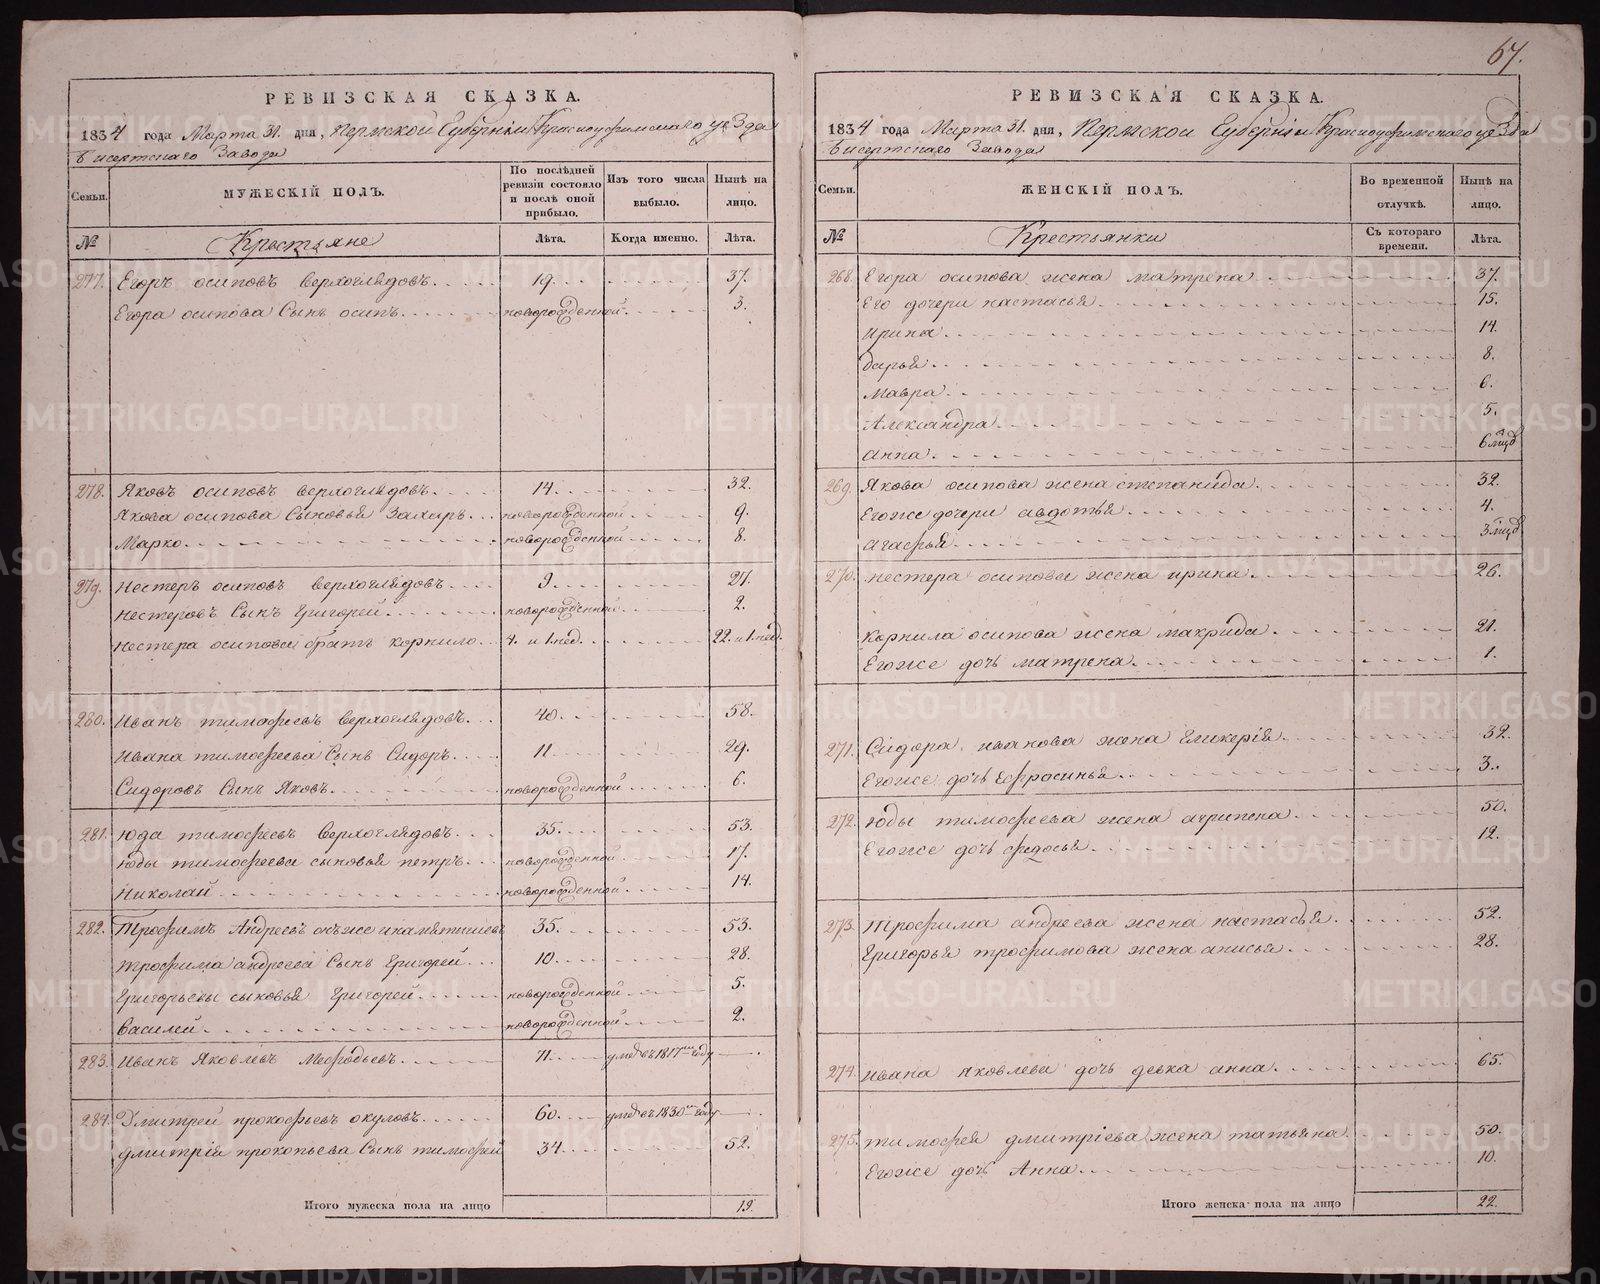 67.
РЕВИЗСКАЯ СКАЗКА.
1834 года Марта 31. дня, Пермской Губерніи Красноуфимскаго уезда
Бисертскаго Завода
Семьи.
МУЖЕСКІЙ ПОЛЪ.
По послѣдней ревизіи состояло и послѣ оной прибыло.
Изъ того числа выбыло.
Нынѣ на лицо.
№ Крестьяне Лѣта. Когда именно. Лѣта.
277. Егоръ осиповъ верхоглядовъ. 19. 37.
Егора осипова Сынъ осипъ. новорожденной. 3.
278. Яковъ осиповъ верхоглядовъ. 14. 32.
Якова осипова Сыновья Захаръ. новорожденной 9.
Марко. новорожденной 8.
279. нестеръ осиповъ верхоглядовъ. 9. 27.
нестеровъ Сынъ Григорей. новорожденной 2.
нестера осипова братъ корнило. 4. и 1. нед. 22. и 1. нед.
280. Иванъ тимофеевъ верхоглядовъ. 40. 58.
Ивана тимофеева Сынъ Сидоръ. 11. 29.
Сидоровъ Сынъ Яковъ. новорожденной 6.
281. юда тимофеевъ верхоглядовъ. 35. 53.
юды тимофеева сыновья петръ. новорожденной 17.
Николай. новорожденной 14.
282. Трофимъ Андреевъ онъже 35. 53.
трофима андреева Сынъ Григорей. 10. 28.
Григорьевы сыновья Григорей. новорожденной 5.
Василей. новорожденной 2.
283. Иванъ Яковлевъ Мефодьевъ. 71. умре въ 1817мъ году
284. Дмитрей прокофьевъ окуловъ. 60. умре въ 1830мъ году
дмитрія прокопьева Сынъ тимофей 34. 52.
Итого мужеска пола на лицо 19.
РЕВИЗСКАЯ СКАЗКА.
1834 года Марта 31. дня, Пермской Губерніи Красноуфимскаго уезда
Бисертскаго Завода
Семьи.
ЖЕНСКІЙ ПОЛЪ.
Во временной отлучкѣ.
Нынѣ на лицо.
№ Крестьянки Съ котораго времени. Лѣта.
268. Егора осипова жена матрена 37.
Его дочери настасья 15.
ирина. 14.
дарья. 8.
мавра. 6.
Александра. 5.
анна. 6 мцовъ
269. Якова осипова жена степанида. 32.
Егоже дочери авдотья 4.
агафья. 3 мцовъ
270. нестера осипова жена ирина. 26.
корнила осипова жена макрида. 21.
Егоже дочь матрена. 1.
271. Сидора иванова жена Гликерія. 32.
Егоже дочь Ефросинья. 3.
272. юды тимофеева жена агрипена. 50.
Егоже дочь федосья. 12.
273. трофима андреева жена настасья. 52.
Григорья трофимова жена анисья. 28.
274. ивана яковлева дочь девка анна. 65.
275. тимофея дмитріева жена татьяна. 50.
Егоже дочь Анна. 10.
Итого женска пола на лицо 22.
METRIKI.GASO-URAL.RU